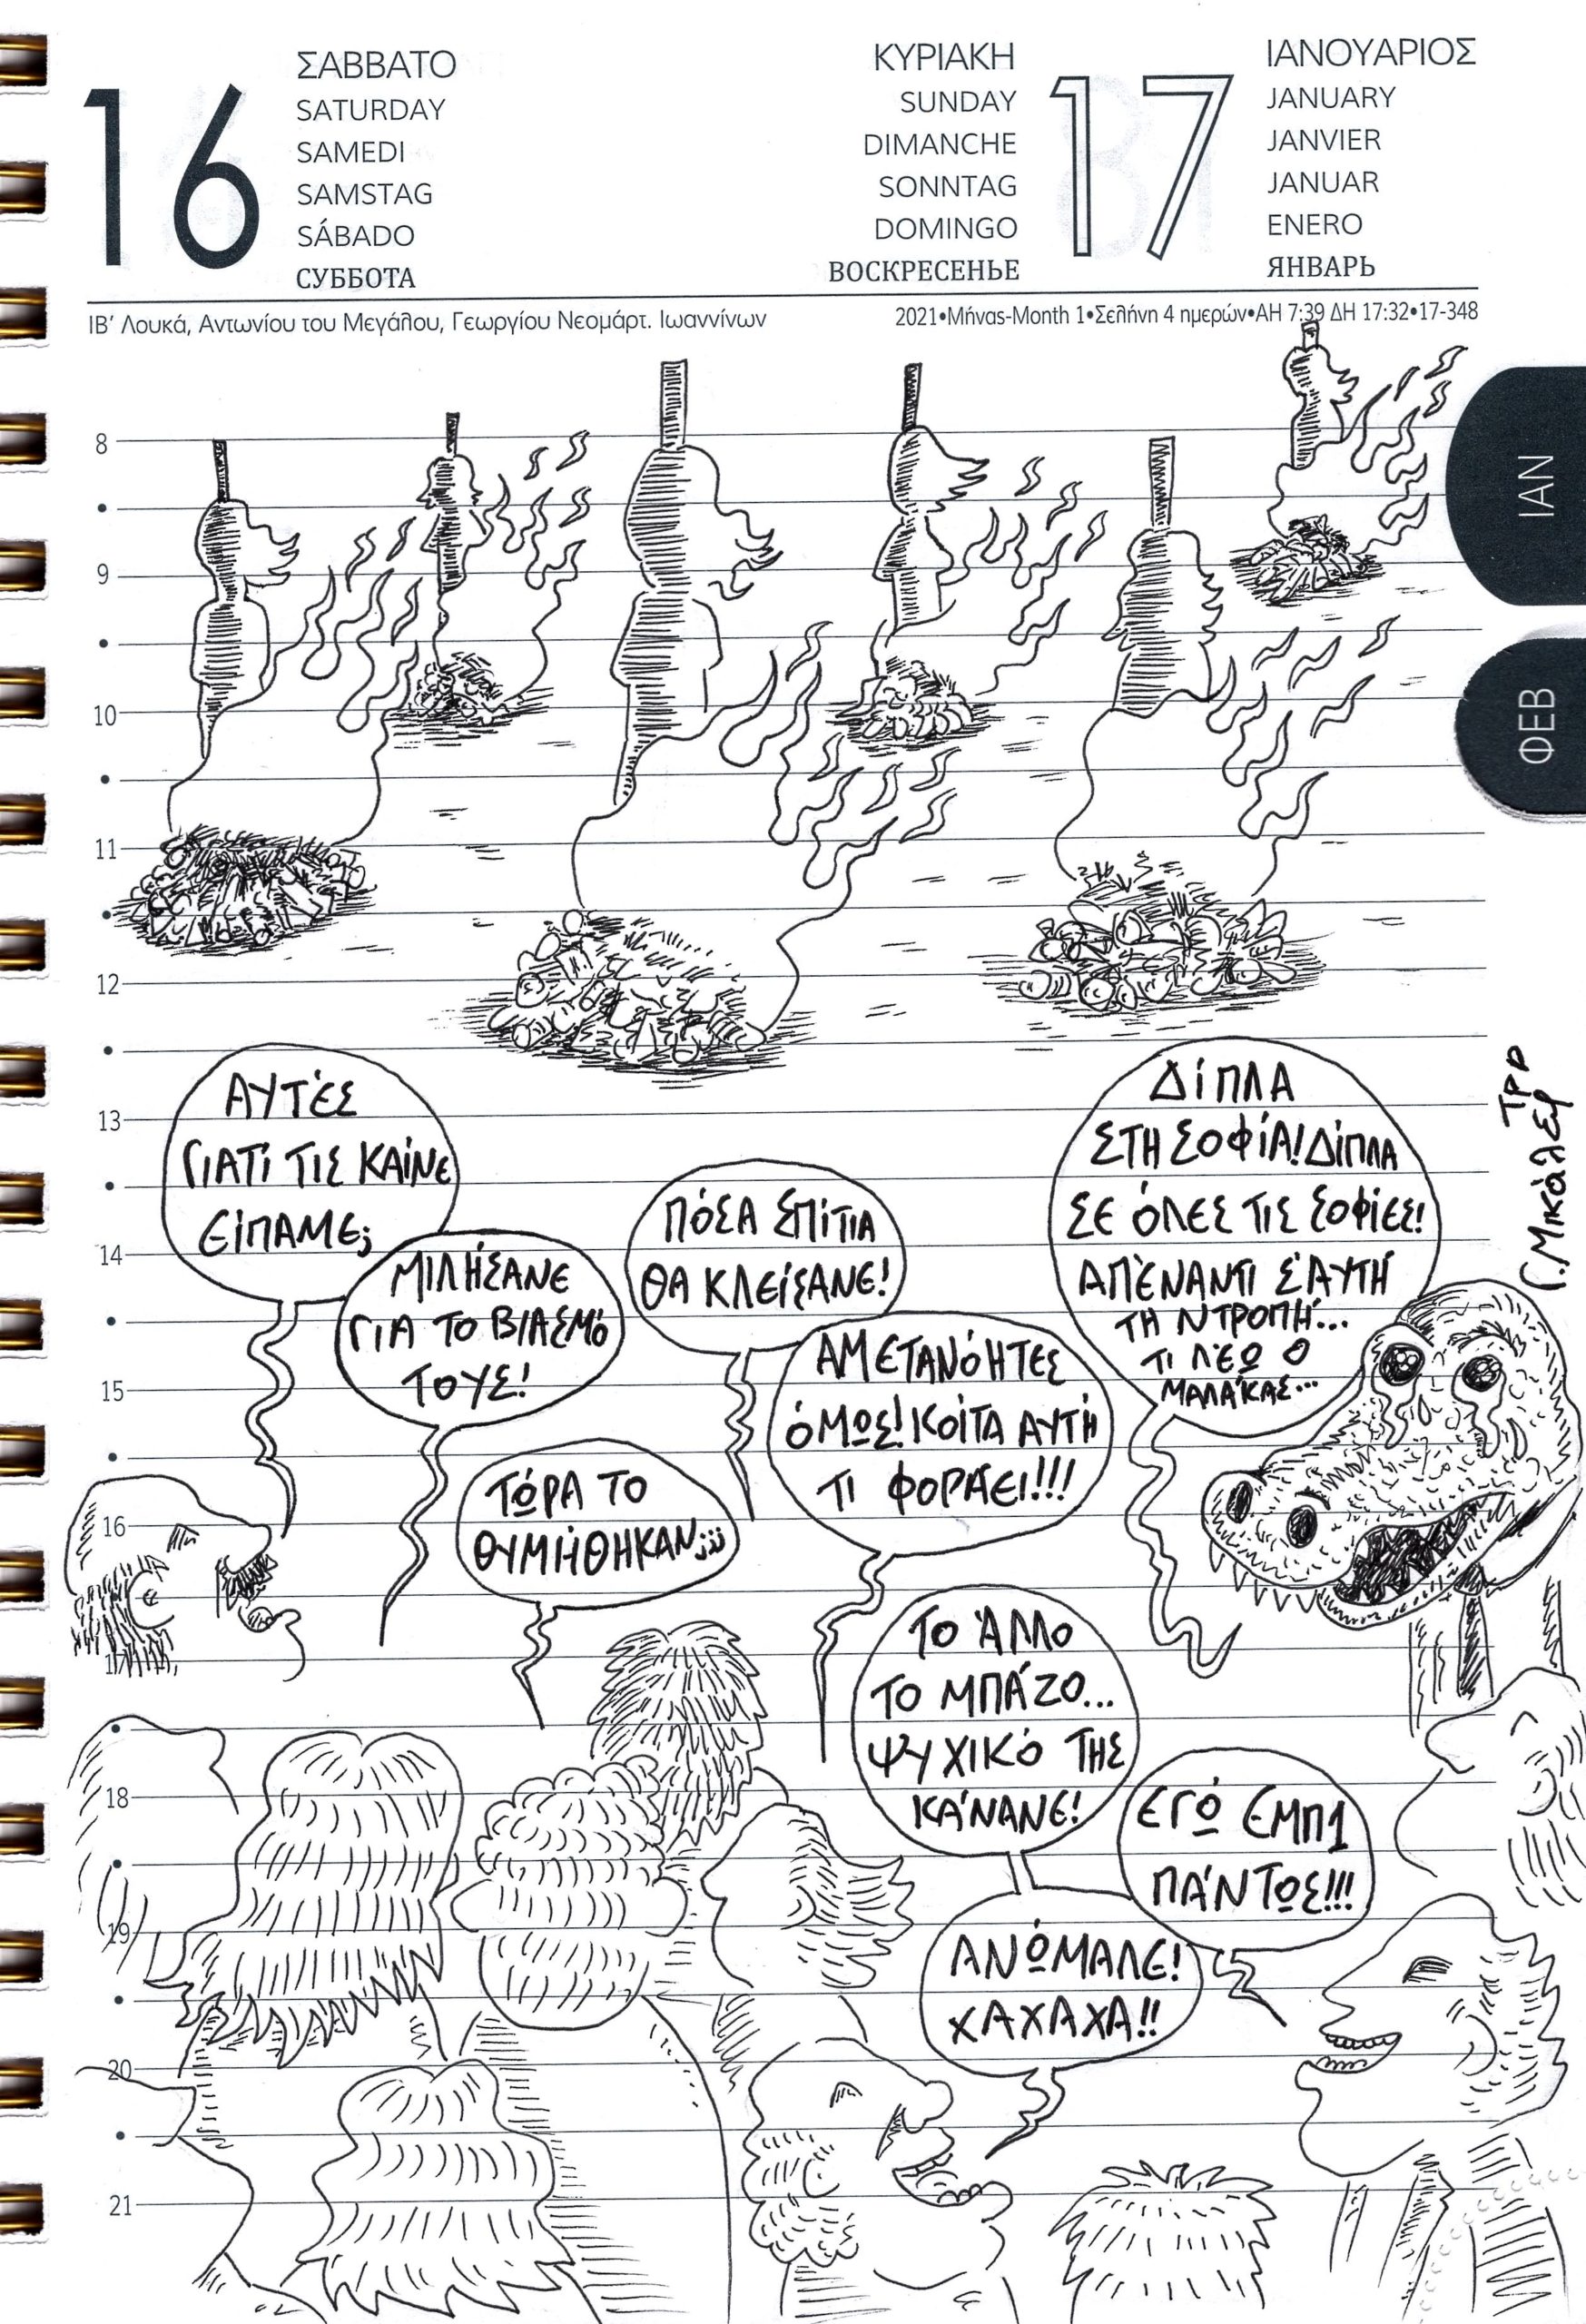 16
ΣΑΒΒΑΤΟ
SATURDAY
SAMEDI
SAMSTAG
SÁBADO
СУББОТА
ΚΥΡΙΑΚΗ
SUNDAY
DIMANCHE
SONNTAG
DOMINGO
ВОСКРЕСЕНЬЕ
17
ΙΑΝΟΥΑΡΙΟΣ
JANUARY
JANVIER
JANUAR
ENERO
ЯНВАРЬ
ΙΒ' Λουκά, Αντωνίου του Μεγάλου, Γεωργίου Νεομάρτ. Ιωαννίνων
2021•Μήνας-Month 1•Σελήνη 4 ημερών•ΑΗ 7:39 ΔΗ 17:32•17-348
ΙΑΝ
ΦΕΒ
8
9
10
11
12
13
14
15
16
17
18
19
20
21
ΑΥΤΈΣ
ΓΙΑΤΊ ΤΙΣ ΚΑΊΝΕ
ΕΊΠΑΜΕ;
ΜΙΛΉΣΑΝΕ
ΓΙΑ ΤΟ ΒΙΑΣΜΌ
ΤΟΥΣ!
ΤΏΡΑ ΤΟ
ΘΥΜΉΘΗΚΑΝ;;;
ΠΌΣΑ ΣΠΊΤΙΑ
ΘΑ ΚΛΕΊΣΑΝΕ!
ΑΜΕΤΑΝΌΗΤΕΣ
ΌΜΩΣ! ΚΟΊΤΑ ΑΥΤΉ
ΤΙ ΦΟΡΆΕΙ!!!
ΔΊΠΛΑ
ΣΤΗ ΣΟΦΊΑ! ΔΊΠΛΑ
ΣΕ ΌΛΕΣ ΤΙΣ ΣΟΦΊΕΣ!
ΑΠΈΝΑΝΤΙ Σ'ΑΥΤΉ
ΤΗ ΝΤΡΟΠΉ...
ΤΙ ΛΈΩ Ο
ΜΑΛΆΚΑΣ...
ΤΟ ΆΛΛΟ
ΤΟ ΜΠΆΖΟ...
ΨΥΧΙΚΌ ΤΗΣ
ΚΆΝΑΝΕ!
ΕΓΏ ΕΜΠ1
ΠΆΝΤΩΣ!!!
ΑΝΏΜΑΛΕ!
ΧΑΧΑΧΑ!!